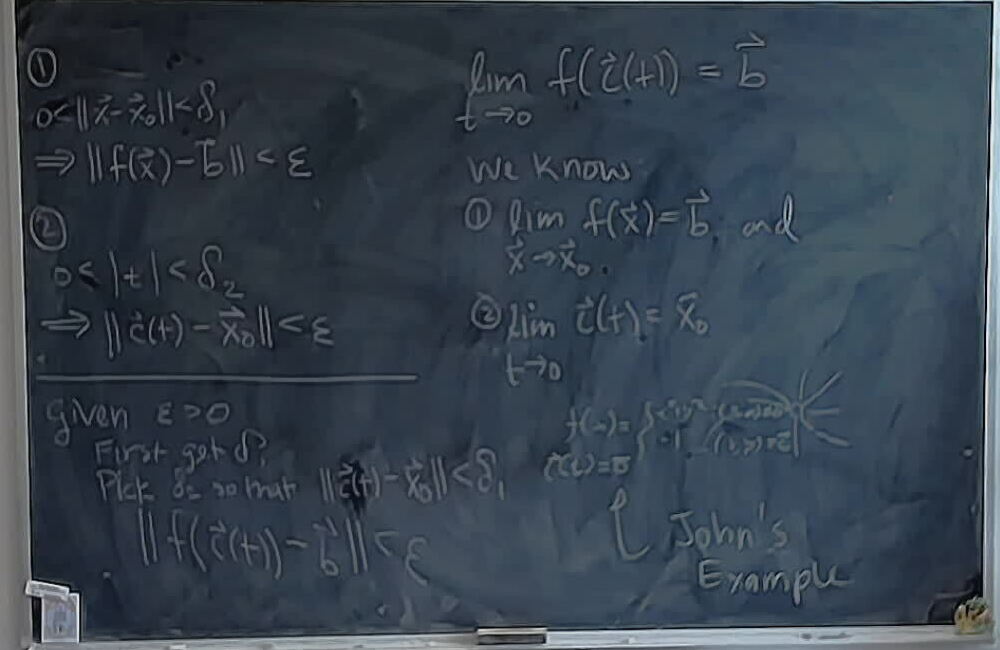 ①
0<||x⃗-x⃗₀||<δ₁
⟹ ||f(x⃗)-b⃗|| < ε
②
0< |t| < δ₂
⟹ ||c⃗(t) - x⃗₀|| < ε
Given ε>0
First get δ₁
Pick δ₂ so that ||c⃗(t)-x⃗₀|| < δ₁
||f(c⃗(t))-b⃗|| < ε
lim f(c⃗(t)) = b⃗
t→0
We know
① lim f(x⃗)= b⃗ and
x⃗→x⃗₀.
② lim c⃗(t) = x⃗₀
t→0
John's
Example